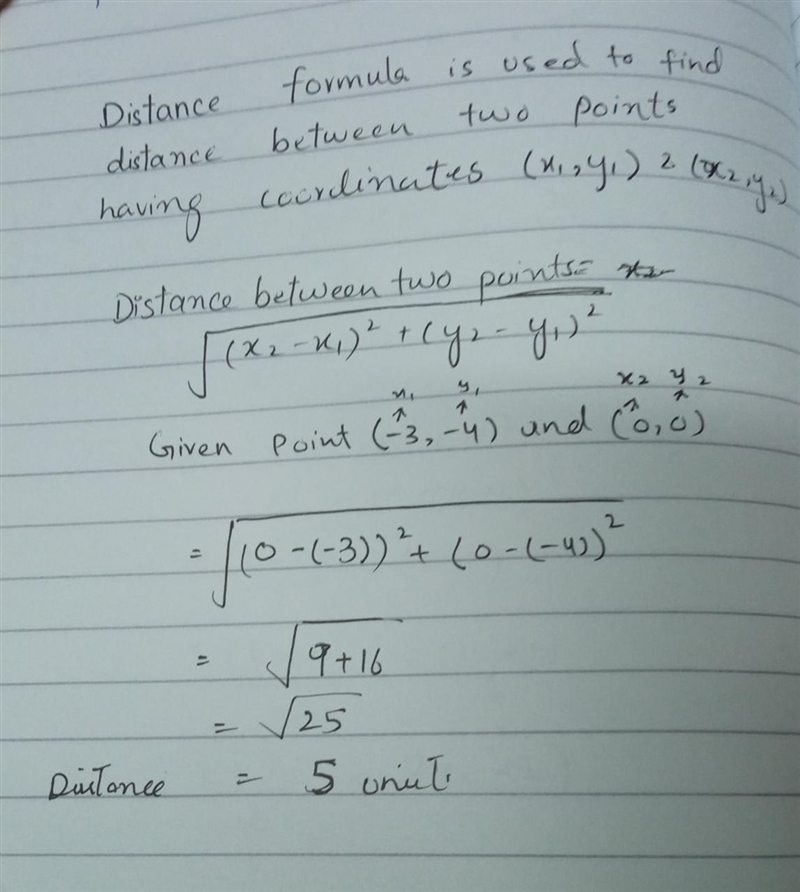 Distance formula is used to find
distance between two points
having coordinates (x₁, y₁) & (x₂, y₂)
Distance between two points =
√((x₂ - x₁)² + (y₂ - y₁)²)
x₁ y₁ x₂ y₂
↑ ↑ ↑ ↑
Given point (-3, -4) and (0, 0)
= √((0 - (-3))² + (0 - (-4))²
= √(9 + 16)
= √25
Distance = 5 unit.